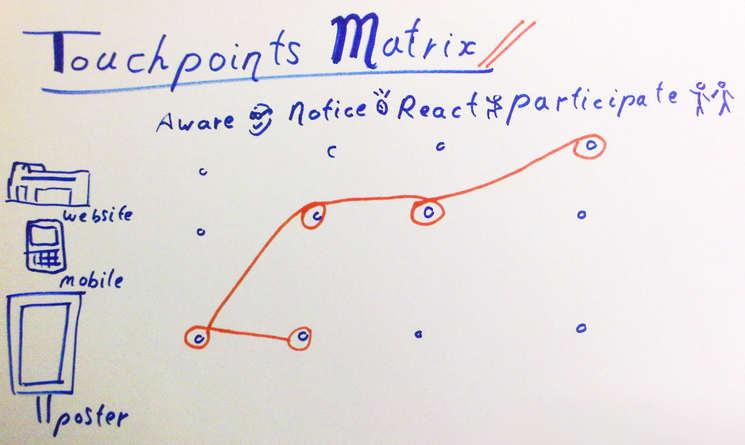 Touchpoints Matrix
Aware Notice React participate
website
mobile
poster